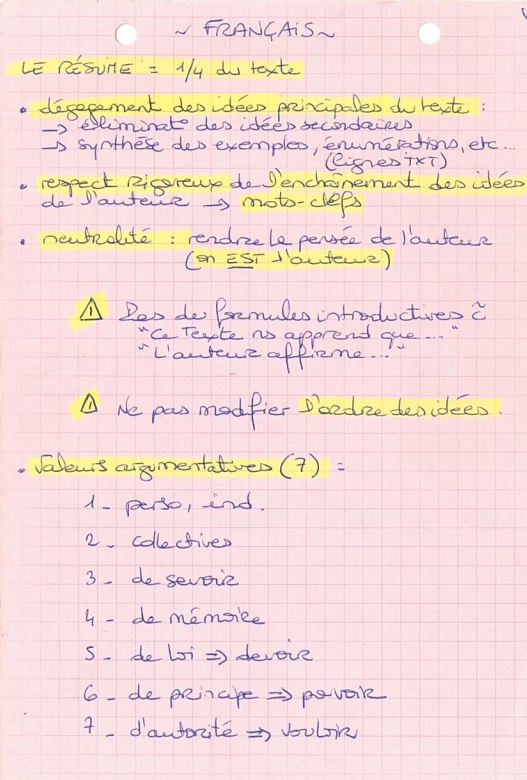 ~ FRANÇAIS ~
LE RÉSUMÉ = 1/4 du texte
• dégagement des idées principales du texte :
→ éliminat° des idées secondaires
→ synthèse des exemples, énumérations, etc...
(lignes TXT)
• respect rigoureux de l'enchaînement des idées
de l'auteur → mots-clefs
• neutralité : rendre la pensée de l'auteur
(on EST l'auteur)
⚠ Pas de formules introductives c̄
"Ce Texte ns apprend que..."
"L'auteur affirme..."
⚠ Ne pas modifier l'ordre des idées.
• Valeurs argumentatives (7) =
1 - perso, ind.
2 - collectives
3 - de savoir
4 - de mémoire
5 - de loi ⇒ devoir
6 - de principe ⇒ pouvoir
7 - d'autorité ⇒ vouloir